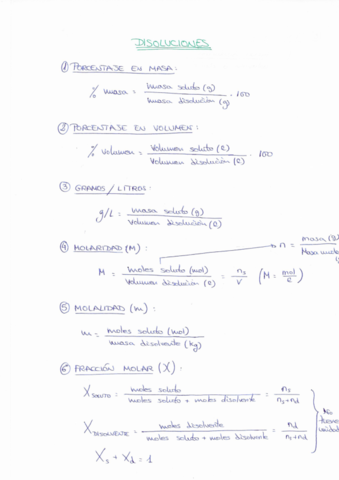 DISOLUCIONES
① PORCENTAJE EN MASA:
% masa = masa soluto (g) / masa disolución (g) · 100
② PORCENTAJE EN VOLUMEN:
% volumen = volumen soluto (l) / volumen disolución (l) · 100
③ GRAMOS / LITROS:
g/L = masa soluto (g) / volumen disolución (l)
④ MOLARIDAD (M): → n = masa (g) / Masa
M = moles soluto (mol) / volumen disolución (l) = ns / V (M = mol / l)
⑤ MOLALIDAD (m):
m = moles soluto (mol) / masa disolvente (kg)
⑥ FRACCIÓN MOLAR (X):
X SOLUTO = moles soluto / moles soluto + moles disolvente = ns / ns+nd
X DISOLVENTE = moles disolvente / moles soluto + moles disolvente = nd / ns+nd
No
Xs + Xd = 1